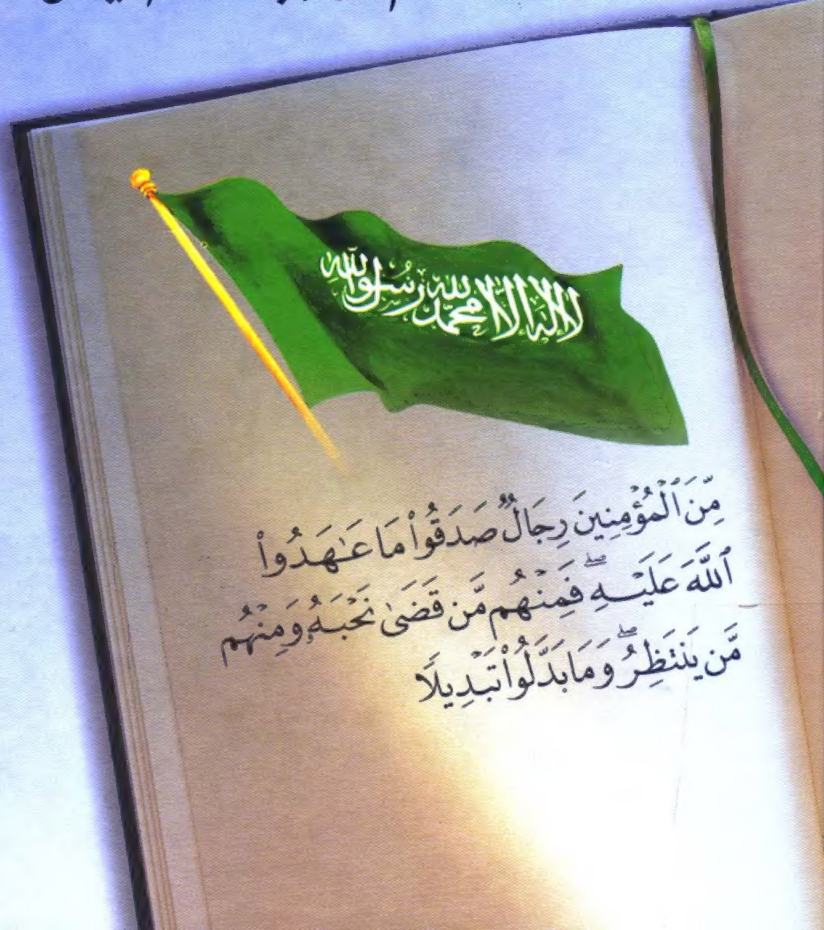 لا إله إلا الله محمد رسول الله
مِّنَ ٱلْمُؤْمِنِينَ رِجَالٌ صَدَقُوا۟ مَا عَٰهَدُوا۟
ٱللَّهَ عَلَيْهِ ۖ فَمِنْهُم مَّن قَضَىٰ نَحْبَهُۥ وَمِنْهُم
مَّن يَنتَظِرُ ۖ وَمَا بَدَّلُوا۟ تَبْدِيلًا